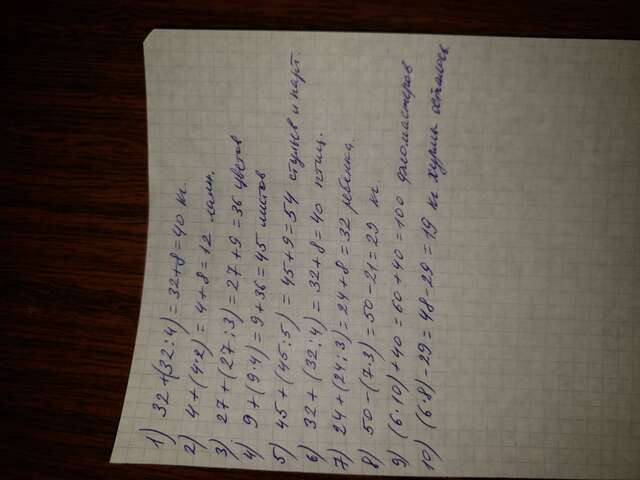 1) 32+(32:4)=32+8=40 кг.
2) 4+(4·2)=4+8=12 ламп.
3) 27+(27:3)=27+9=36 цветов
4) 9+(9·4)=9+36=45 листов
5) 45+(45:5)=45+9=54 стульев и парт.
6) 32+(32:4)=32+8=40 птиц.
7) 24+(24:3)=24+8=32 ребёнка.
8) 50-(7·3)=50-21=29 кг.
9) (6·10)+40=60+40=100 фломастеров
10) (6·8)-29=48-29=19 кг хурмы осталось